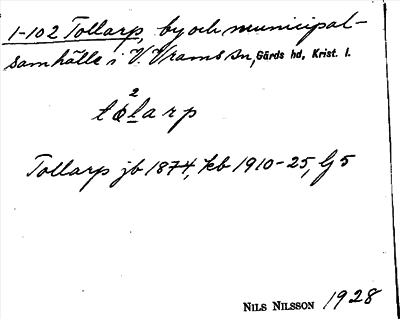 1-102 Tollarp, by och municipal-
samhälle i V. Vrams sn, Gärds hd, Krist. l.
2
tɷlarp
Tollarp jb 1874, kb 1910-25, Gj 5
NILS NILSSON 1928